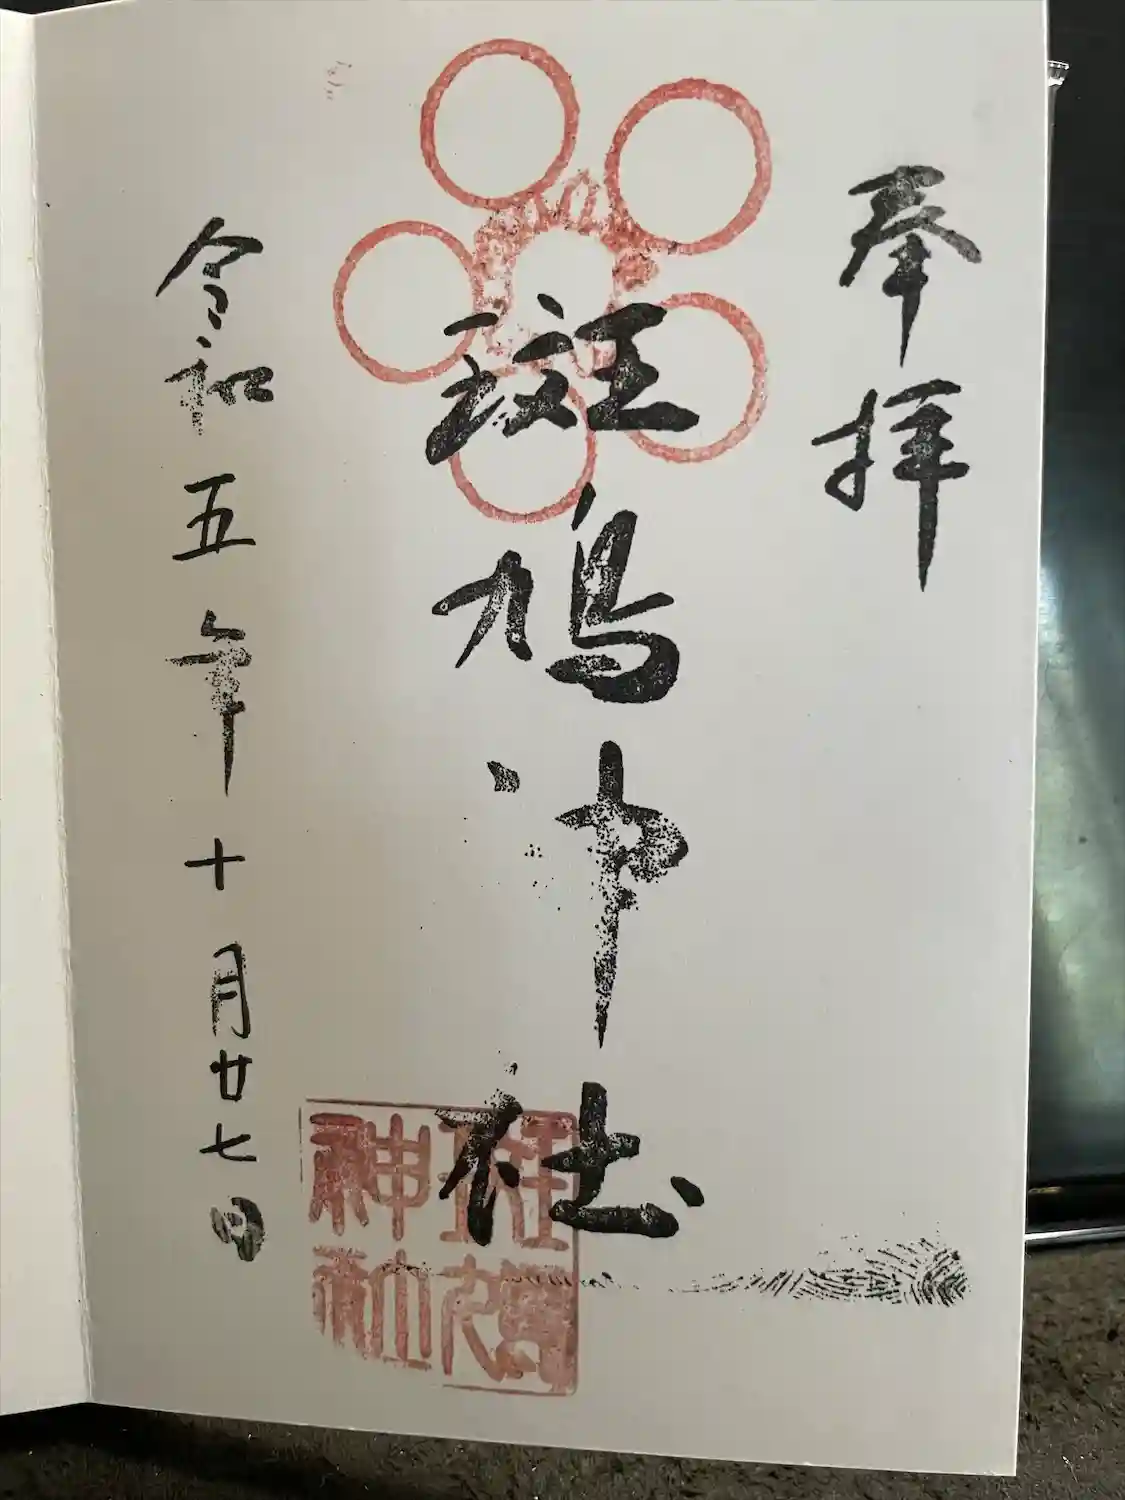 奉拝
斑鳩神社
斑鳩神社
令和五年十月廿七日